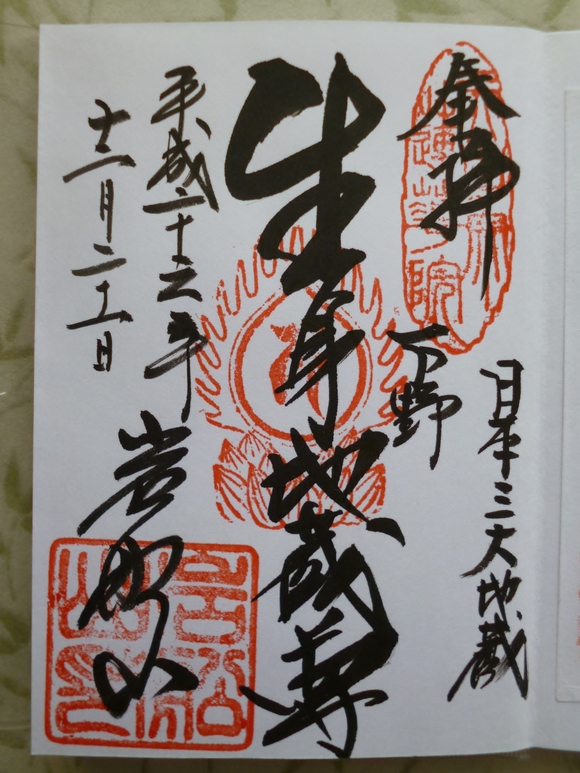 奉拝
蓮華院
日本三大地蔵
下野
生身地蔵尊
平成二十六年
十二月二十一日
岩船山